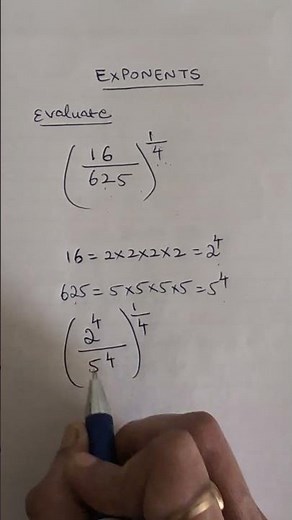 EXPONENTS
Evaluate
(16/625)^1/4
16 = 2×2×2×2 = 2^4
625 = 5×5×5×5 = 5^4
(2^4/5^4)^1/4